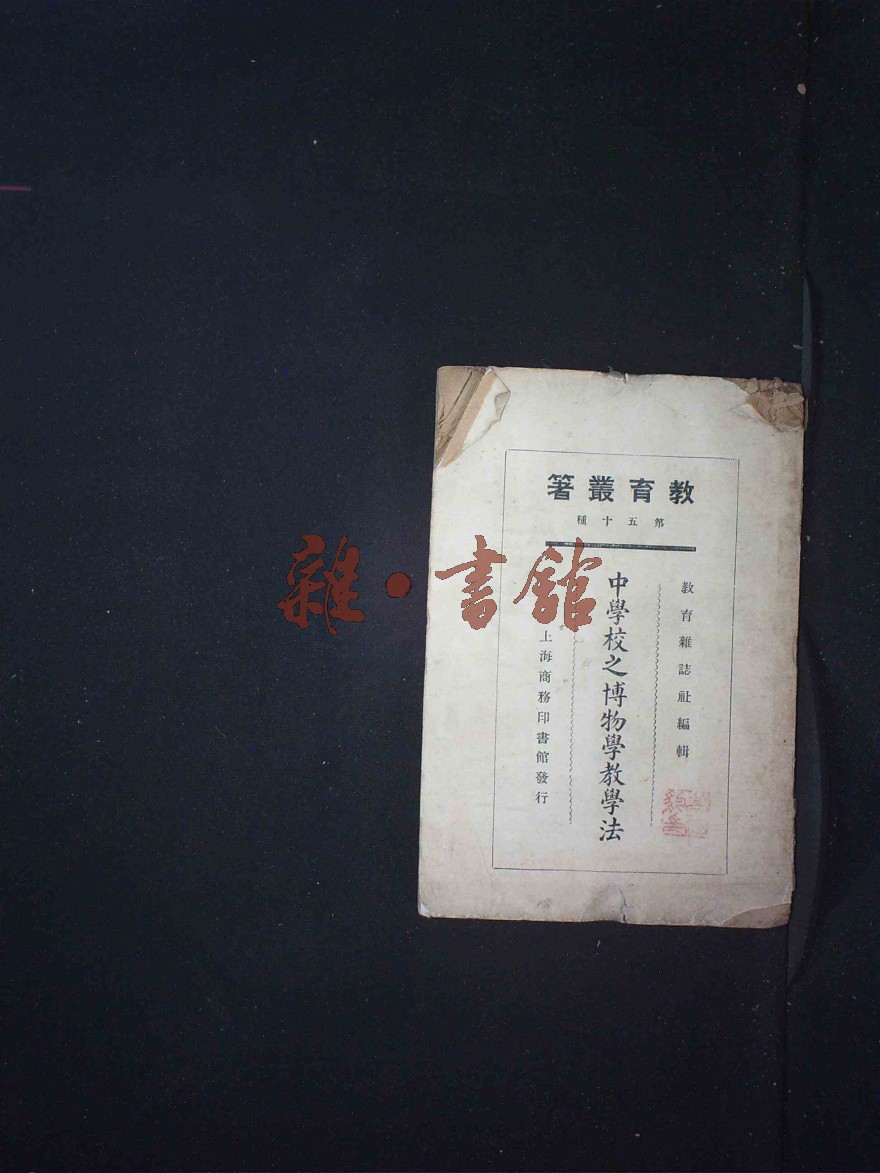 教育叢箸
第五十種
教育雜誌社編輯
中學校之博物學教學法
上海商務印書館發行
雜·書館